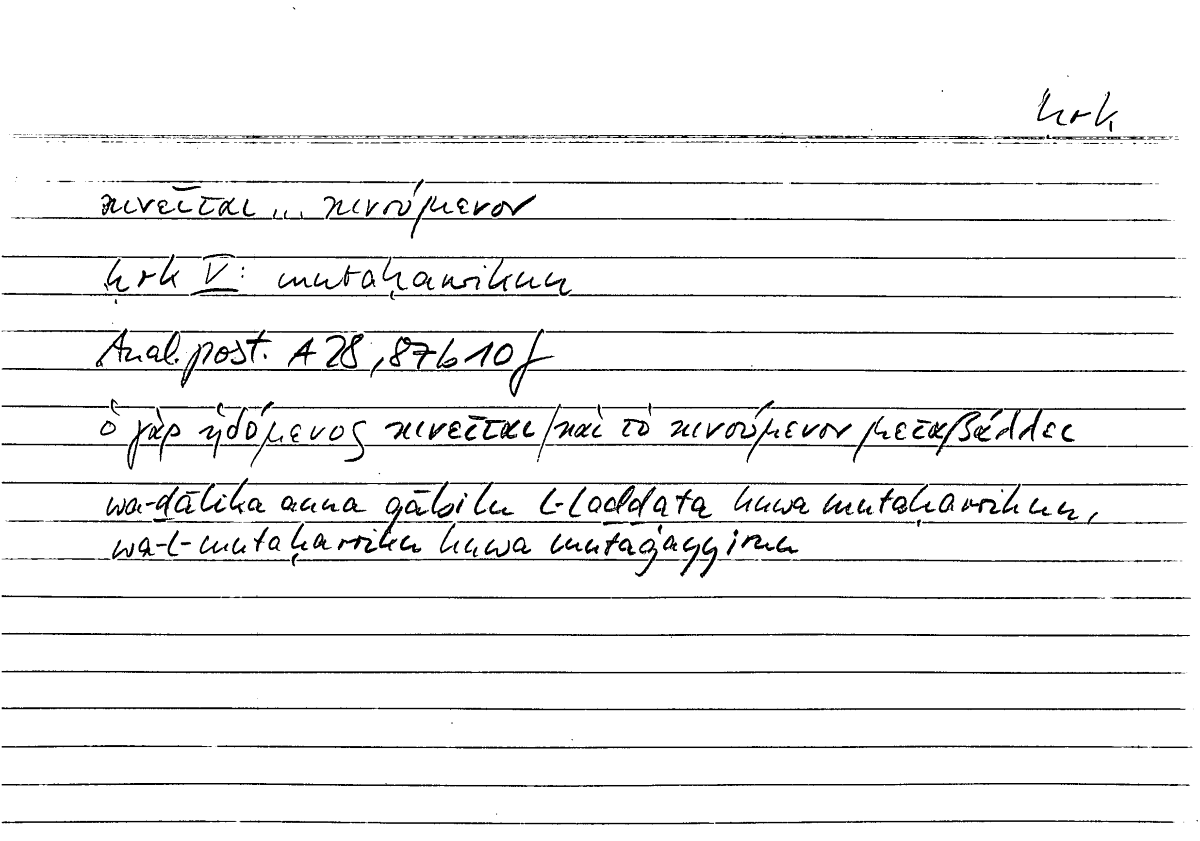 ḥrk
κινεῖται ... κινούμενον
ḥrk V: mutaḥarrikun
Anal. post. A 28, 87b10f
ὁ γὰρ ἡδόμενος κινεῖται/καὶ τὸ κινούμενον μεταβάλλει
wa-ḏālika anna qābila l-laḏḏata huwa mutaḥarrikun,
wa-l-mutaḥarriku huwa mutaġayyirun